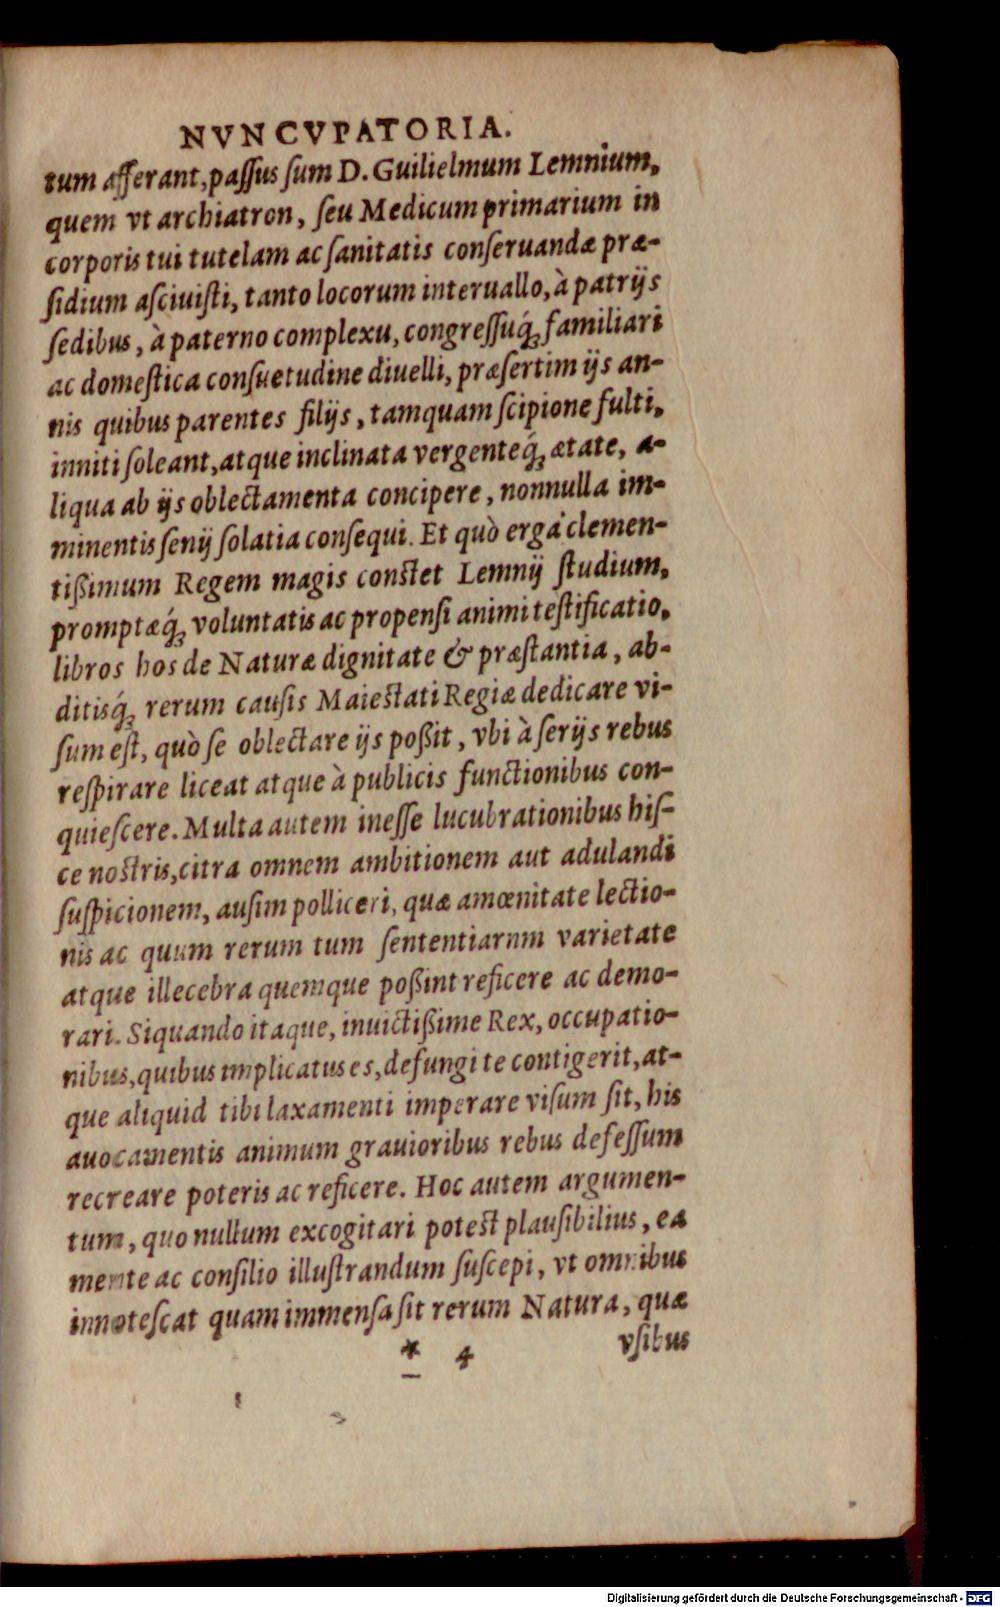 NVNCVPATORIA.
tum afferant, paſſus ſum D. Guilielmum Lemnium,
quem vt archiatron, ſeu Medicum primarium in
corporis tui tutelam ac ſanitatis conſeruandæ præ-
ſidium aſciuiſti, tanto locorum interuallo, à patrijs
ſedibus, à paterno complexu, congreſſuq́ꝫ familiari
ac domeſtica conſuetudine diuelli, præſertim ijs an-
nis quibus parentes filijs, tamquam ſcipione fulti,
inniti ſoleant, atque inclinata vergenteq́ꝫ ætate, a-
liqua ab ijs oblectamenta concipere, nonnulla im-
minentis ſenij ſolatia conſequi. Et quò erga clemen-
tißimum Regem magis conſtet Lemnij ſtudium,
promptæq́ꝫ voluntatis ac propenſi animi teſtificatio,
libros hos de Naturæ dignitate & præſtantia, ab-
ditisq́ꝫ rerum cauſis Maieſtati Regiæ dedicare vi-
ſum eſt, quò ſe oblectare ijs poßit, vbi à ſerijs rebus
reſpirare liceat atque à publicis functionibus con-
quieſcere. Multa autem ineſſe lucubrationibus hiſ-
ce noſtris, citra omnem ambitionem aut adulandi
ſuſpicionem, auſim polliceri, quæ amœnitate lectio-
nis ac quum rerum tum ſententiarnm varietate
atque illecebra quemque poßint reficere ac demo-
rari. Siquando itaque, inuictißime Rex, occupatio-
nibus, quibus implicatus es, defungi te contigerit, at-
que aliquid tibi laxamenti imperare viſum ſit, his
auocamentis animum grauioribus rebus defeſſum
recreare poteris ac reficere. Hoc autem argumen-
tum, quo nullum excogitari poteſt plauſibilius, ea
mente ac conſilio illuſtrandum ſuſcepi, vt omnibus
innoteſcat quam immenſa ſit rerum Natura, quæ
* 4 vſibus
Digitalisierung gefördert durch die Deutsche Forschungsgemeinschaft - DFG